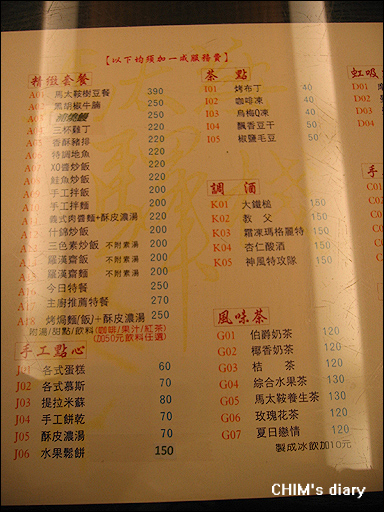 【以下均須加一成服務費】
精緻套餐
A01 馬太鞍樹豆餐 390
A02 黑胡椒牛腩 250
A03 250
A04 三杯雞丁 220
A05 香酥豬排 220
A06 特調地魚 220
A07 XO醬炒飯 220
A08 鮭魚炒飯 200
A09 手工拌飯 200
A10 手工拌麵 200
義式肉醬麵+酥皮濃湯 220
什錦炒飯 200
三色素炒飯 不附素湯 200
羅漢齋飯 不附素湯 200
羅漢齋麵 不附素湯 200
A16 今日特餐 250
主廚推薦特餐 270
A18 焗烤麵(飯)+酥皮濃湯 250
附湯/甜點/飲料(咖啡/果汁/紅茶)
(加50元飲料任選)
手工點心
J01 各式蛋糕 60
J02 各式慕斯 70
J03 提拉米蘇 80
J04 手工餅乾 70
J05 酥皮濃湯 70
J06 水果鬆餅 150
茶 點
I01 烤布丁 40
I02 咖啡凍 40
I03 烏梅Q凍 40
I04 飄香豆干 50
I05 椒鹽毛豆 50
調 酒
K01 大鐵槌 150
K02 教 父 150
K03 霜凍瑪格麗特 150
K04 杏仁酸酒 150
K05 神風特攻隊 150
風味茶
G01 伯爵奶茶 120
G02 椰香奶茶 120
G03 桔 茶 120
G04 綜合水果茶 130
G05 馬太鞍養生茶 130
G06 玫瑰花茶 120
G07 夏日戀情 120
製成冰飲加10元
虹吸
D01
D0
D0
D04
手
C01
C02
C03
CHIM's diary